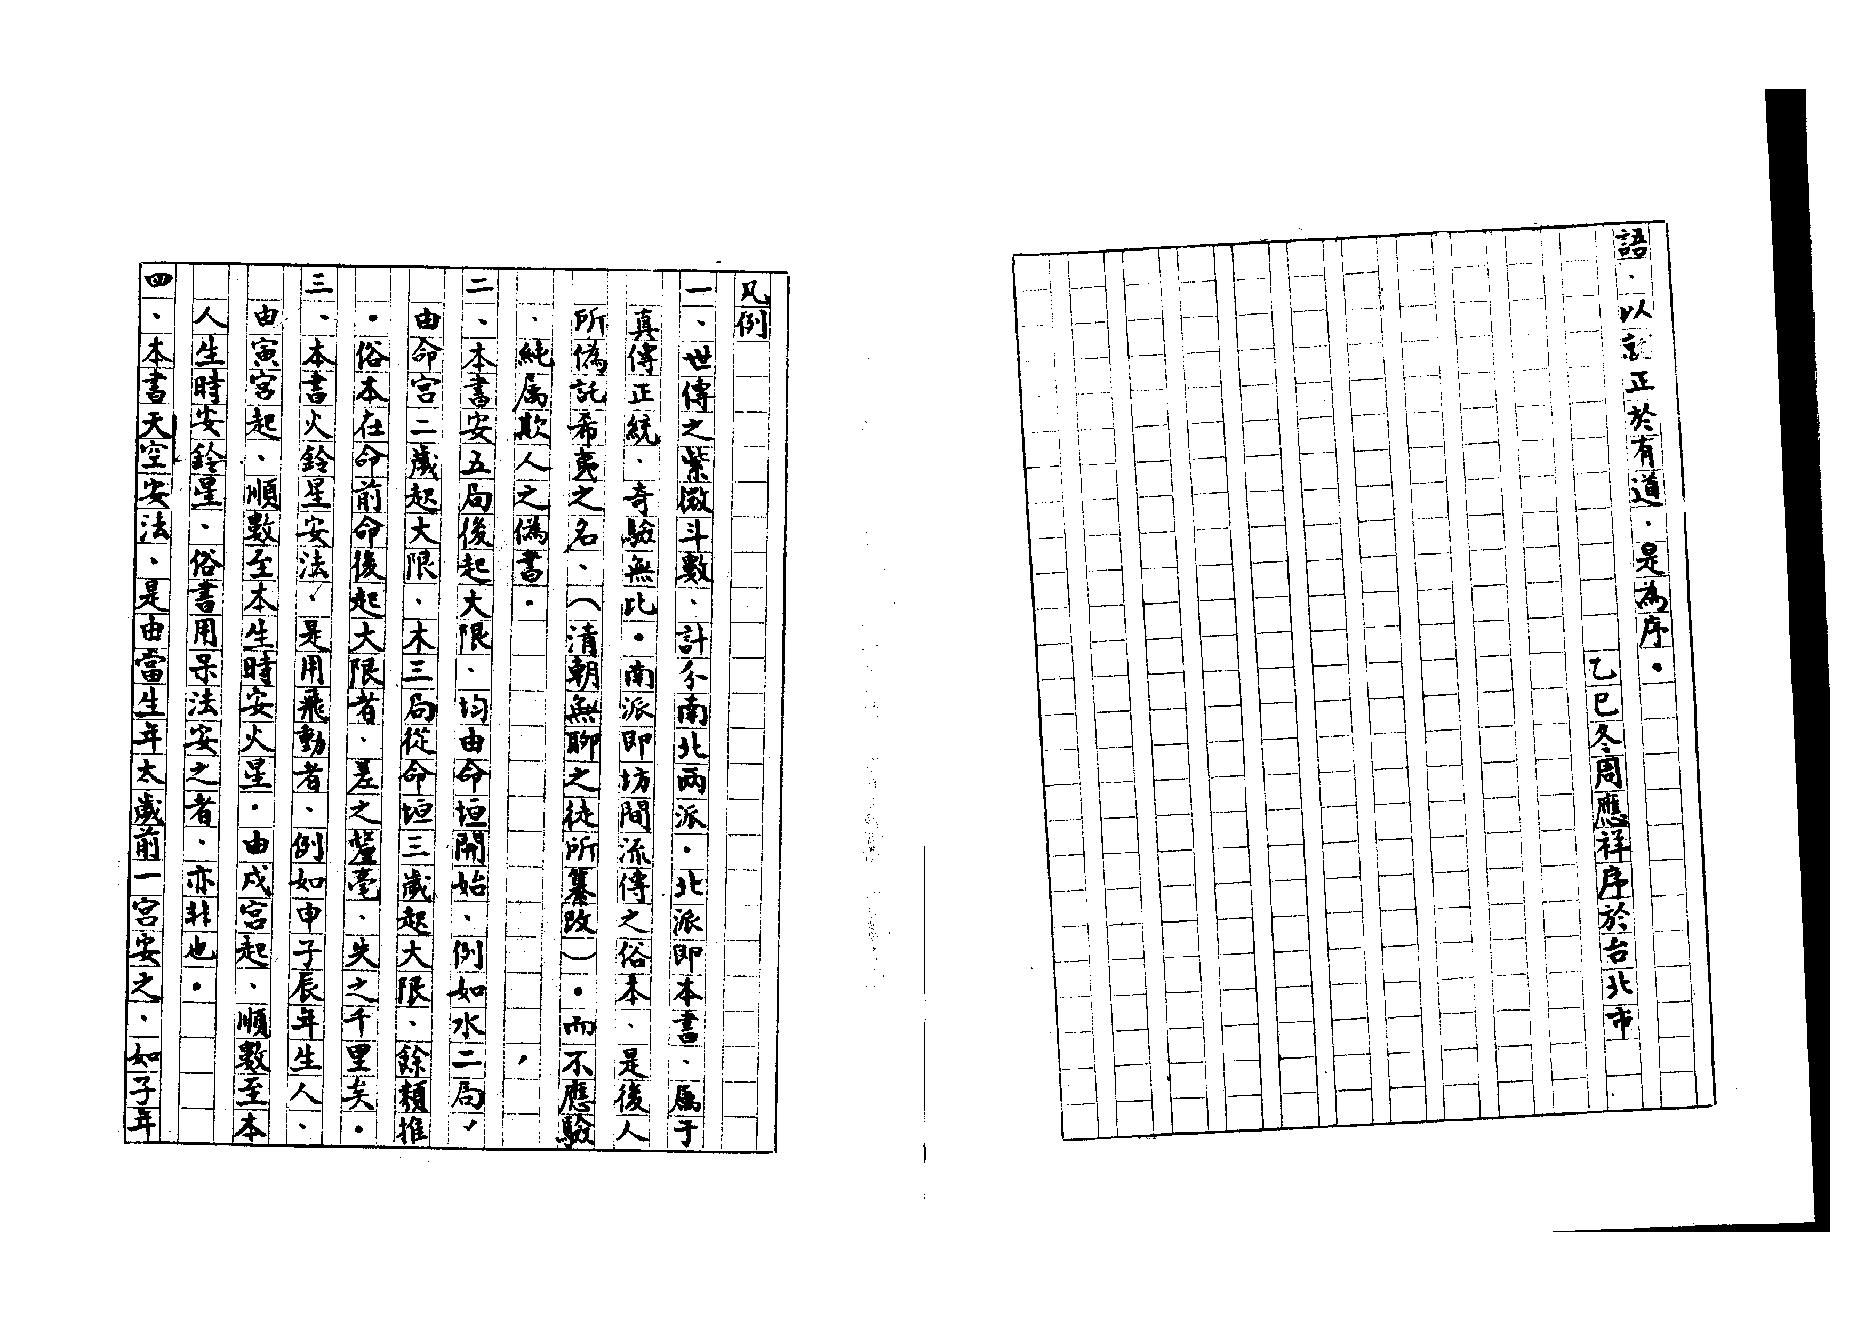 語、以就正於有道、是為序。
乙巳冬周應祥序於台北市
凡例
一、世傳之紫微斗數、計分南北兩派。北派即本書、属于
真傳正統、奇驗無比。南派即坊間流傳之俗本、是後人
所偽託希夷之名、(清朝無聊之徒所纂改)。而不應驗
、純属欺人之偽書。
二、本書安五局後起大限、均由命垣開始、例如水二局，
由命宮二歲起大限、木三局從命垣三歲起大限、餘類推
。俗本在命前命後起大限者、差之釐毫、失之千里矣。
三、本書火鈴星安法、是用飛動者、例如申子辰年生人、
由寅宮起、順數至本生時安火星。由戍宮起、順數至本
人生時安鈴星、俗書用呆法安之者、亦非也。
四、本書天空安法、是由當生年太歲前一宮安之、如子年